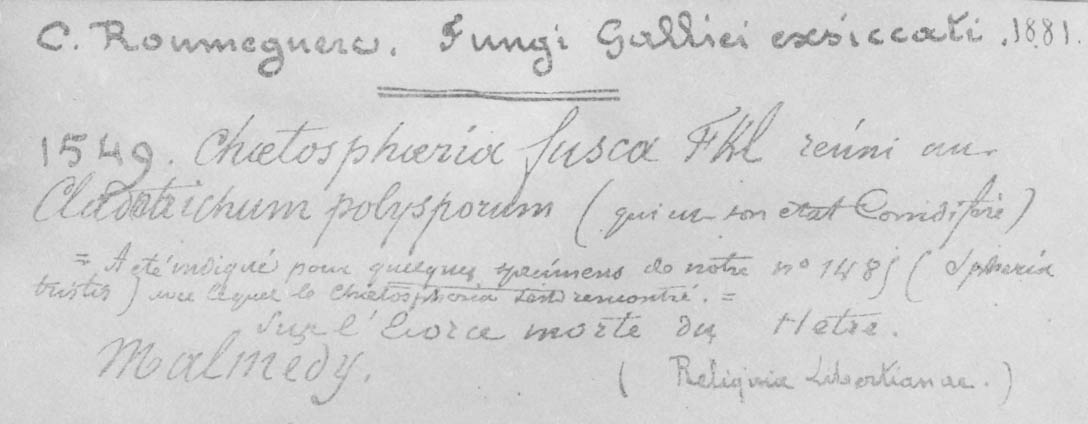 C. Roumeguere. Fungi Gallici exsiccati. 1881.
1549. Chætosphæria fusca Fkl réuni au
Cladotrichum polysporum (qui est son etat Conidifère)
= A été indiqué pour quelques specimens de notre nº 1485 (Spheria
tristis) avec lequel le Chætosphæria s'est rencontré. =
Sur l'Ecorce morte du Hetre.
Malmedy. (Reliquiæ Libertianae.)